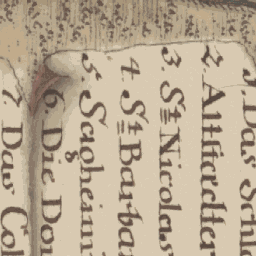 1. Das Schl
2. Attstretster
3. St Nicolas
4. St Barbar
5. Sagheim
6. Die Dom
7. Das Coll